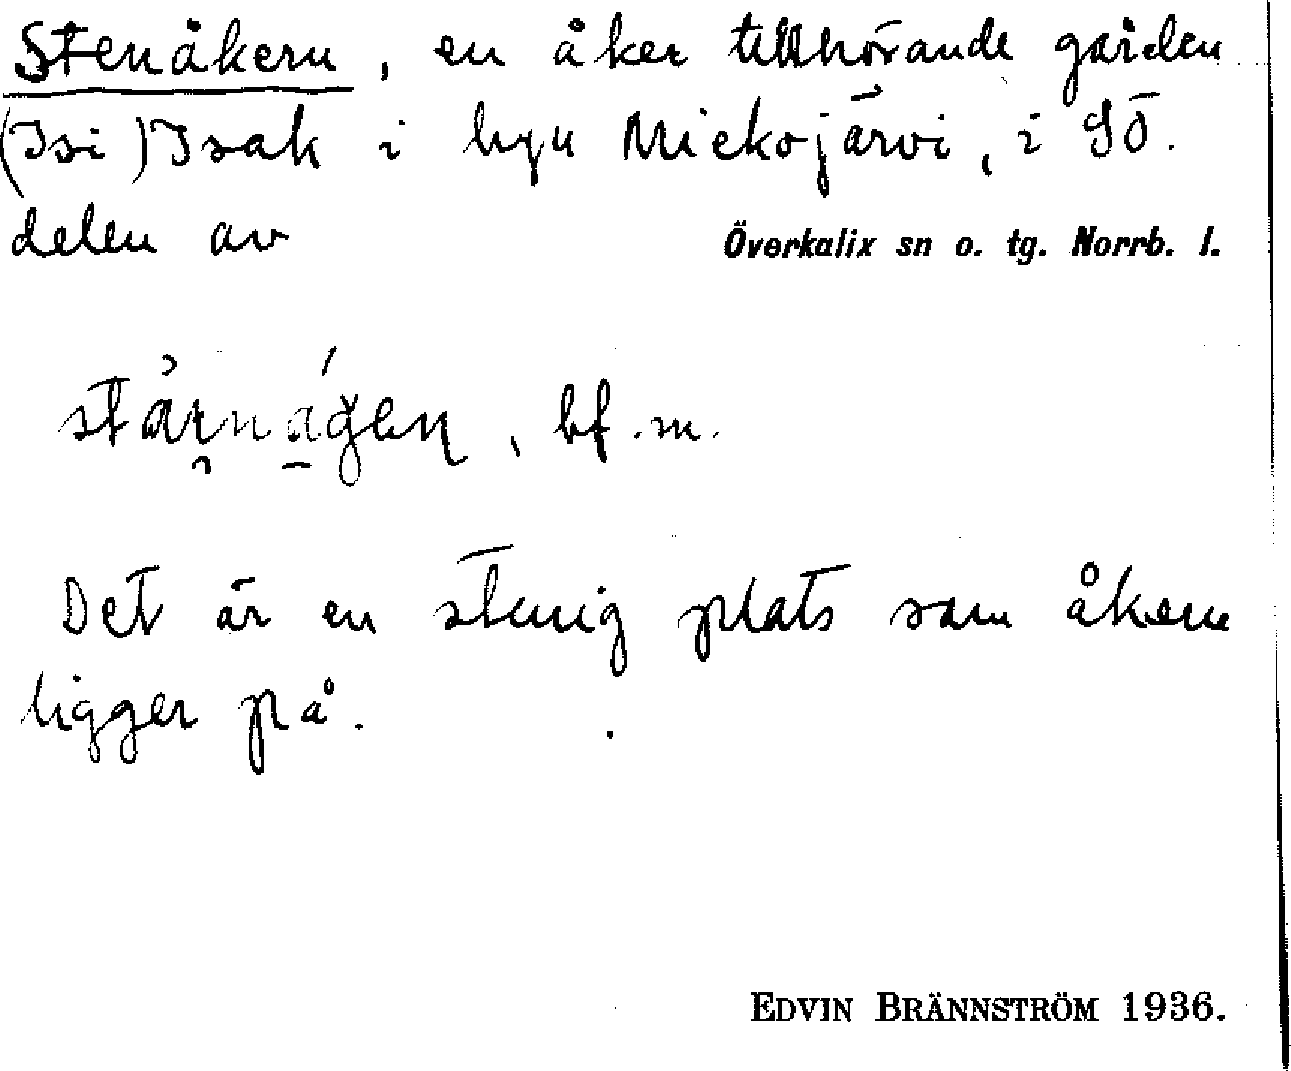 Stenåkern, en åker tillhörande gården
(Isi) Isak i byn Miekojärvi, i SÖ.
delen av Överkalix sn o. tg. Norrb. l.
bf. m.
Det är en stenig plats som åkern
ligger på.
EDVIN BRÄNNSTRÖM 1936.